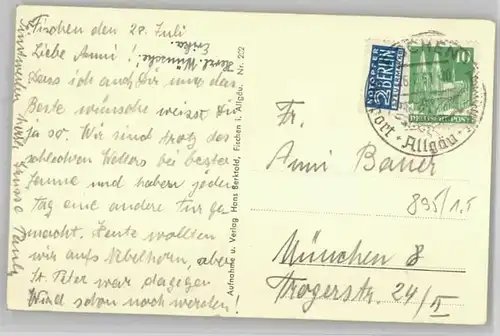 Fischen den 28. Juli
Liebe Anni!
Herzl. Wünsche!
Erika.
Dass ich auch Dir nur das
Beste wünsche weisst Du
ja so. Wir sind trotz des
schlechten Wetters bei bester
Laune und haben jeden
Tag eine andere Tur ge-
macht. Heute wollten
wir aufs Nebelhorn, aber
St. Peter war dagegen
Wird schon noch werden!
Grüsse
Aufnahme u. Verlag Hans Berktold, Fischen i. Allgäu. Nr. 202
NOTOPFER
2 BERLIN
STEUERMARKE
10
DEUTSCHE POST
Allgäu
Fr.
Anni Bauer
895/1.5
München 8
Trogerstr. 24/II